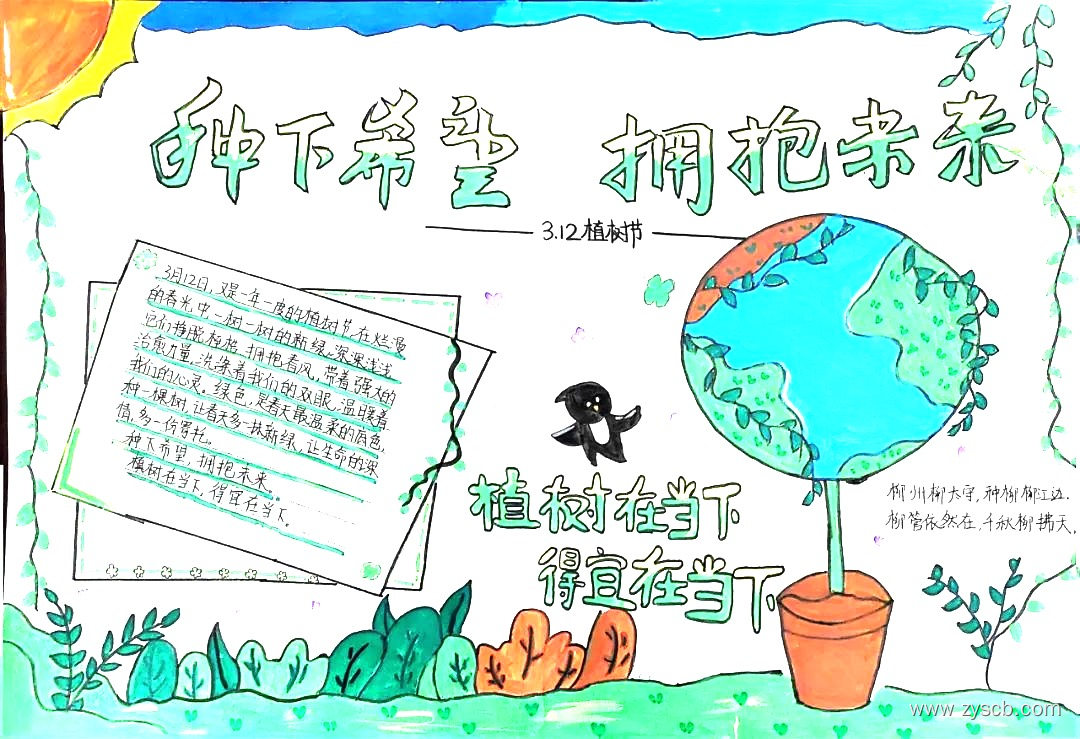 种下希望 拥抱未来
3.12植树节
3月12日,又是一年一度的植树节在烂漫
的春光中一树一树的新绿,深深浅浅
它们挣脱桎梏,拥抱春风,带着强大的
治愈力量,洗涤着我们的双眼,温暖着
我们的心灵。绿色,是春天最温柔的底色,
种一棵树,让春天多一抹新绿,让生命的深
情,多一份寄托。
种下希望,拥抱未来。
植树在当下,得宜在当下。
植树在当下
得宜在当下
柳州柳太守,种柳柳江边.
柳管依然在,千秋柳拂天.
www.zyscb.com